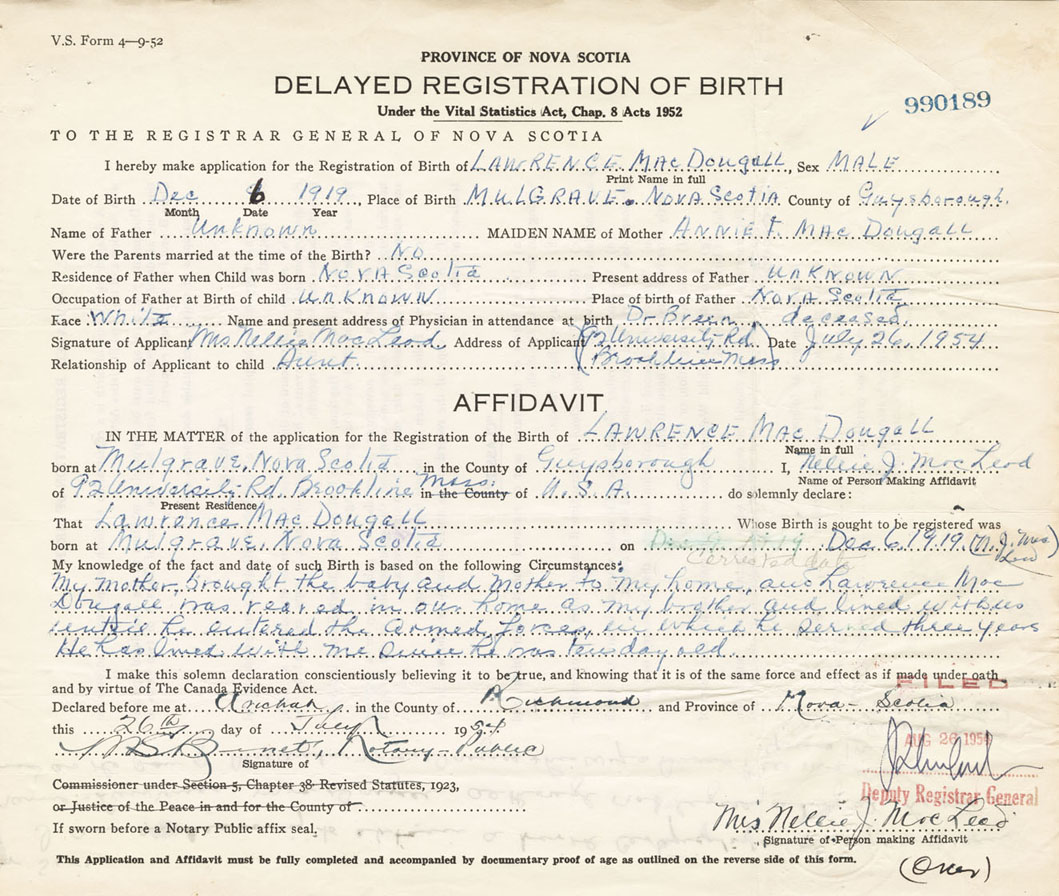 V.S. Form 4—9-52
PROVINCE OF NOVA SCOTIA
DELAYED REGISTRATION OF BIRTH
Under the Vital Statistics Act, Chap. 8 Acts 1952
990189
TO THE REGISTRAR GENERAL OF NOVA SCOTIA
I hereby make application for the Registration of Birth of LAWRENCE MacDougall, Sex MALE
Print Name in full
Date of Birth Dec 6 1919, Place of Birth MULGRAVE. NOVA SCOTIA County of Guysborough.
Month Date Year
Name of Father Unknown MAIDEN NAME of Mother ANNIE F. MAC Dougall
Were the Parents married at the time of the Birth? No
Residence of Father when Child was born NOVA Scotia Present address of Father UNKNOWN
Occupation of Father at Birth of child UNKNOWN Place of birth of Father Nova Scotia
Race White Name and present address of Physician in attendance at birth Dr Breen deceased
Signature of Applicant Mrs Nellie MacLeod Address of Applicant (92 University Rd Date July 26, 1954
Relationship of Applicant to child Aunt. Brookline Mass)
AFFIDAVIT
IN THE MATTER of the application for the Registration of the Birth of LAWRENCE MAC Dougall
Name in full
born at Mulgrave, Nova Scotia in the County of Guysborough I, Nellie J. MacLeod
Name of Person Making Affidavit
of 92 University Rd Brookline Mass. in the County of U.S.A. do solemnly declare:
Present Residence
That Lawrance MAC Dougall Whose Birth is sought to be registered was
born at Mulgrave, Nova Scotia on Dec 1919 Dec 6, 1919. (N. J. Mac Leod)
Corrected date
My knowledge of the fact and date of such Birth is based on the following Circumstances:
My mother, brought the baby and Mother to my home, and Lawrence Mac
Dougall was reared in our home as my brother and lived with us
untill he entered the armed forces, in which he served three years
He has lived with me since he was ten day old.
I make this solemn declaration conscientiously believing it to be true, and knowing that it is of the same force and effect as if made under oath
and by virtue of The Canada Evidence Act.
FILED
Declared before me at Arichat, in the County of Richmond and Province of Nova-Scotia
this 26th day of July 1954
AUG 26 1954
Notary-Public
Signature of
Commissioner under Section 5, Chapter 38 Revised Statutes, 1923,
Deputy Registrar General
or Justice of the Peace in and for the County of
Mrs Nellie J. MacLeod
If sworn before a Notary Public affix seal.
Signature of Person making Affidavit
This Application and Affidavit must be fully completed and accompanied by documentary proof of age as outlined on the reverse side of this form.
(Over)